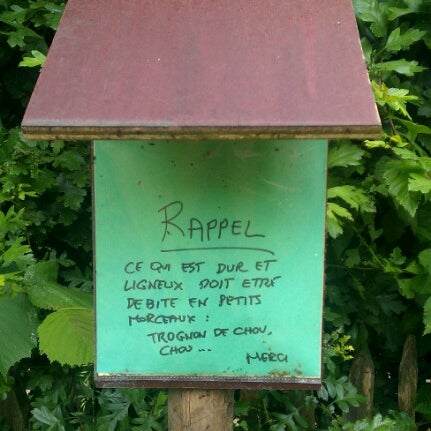 RAPPEL
CE QUI EST DUR ET
LIGNEUX DOIT ETRE
DEBITE EN PETITS
MORCEAUX :
TROGNON DE CHOU,
CHOU ...
MERCI